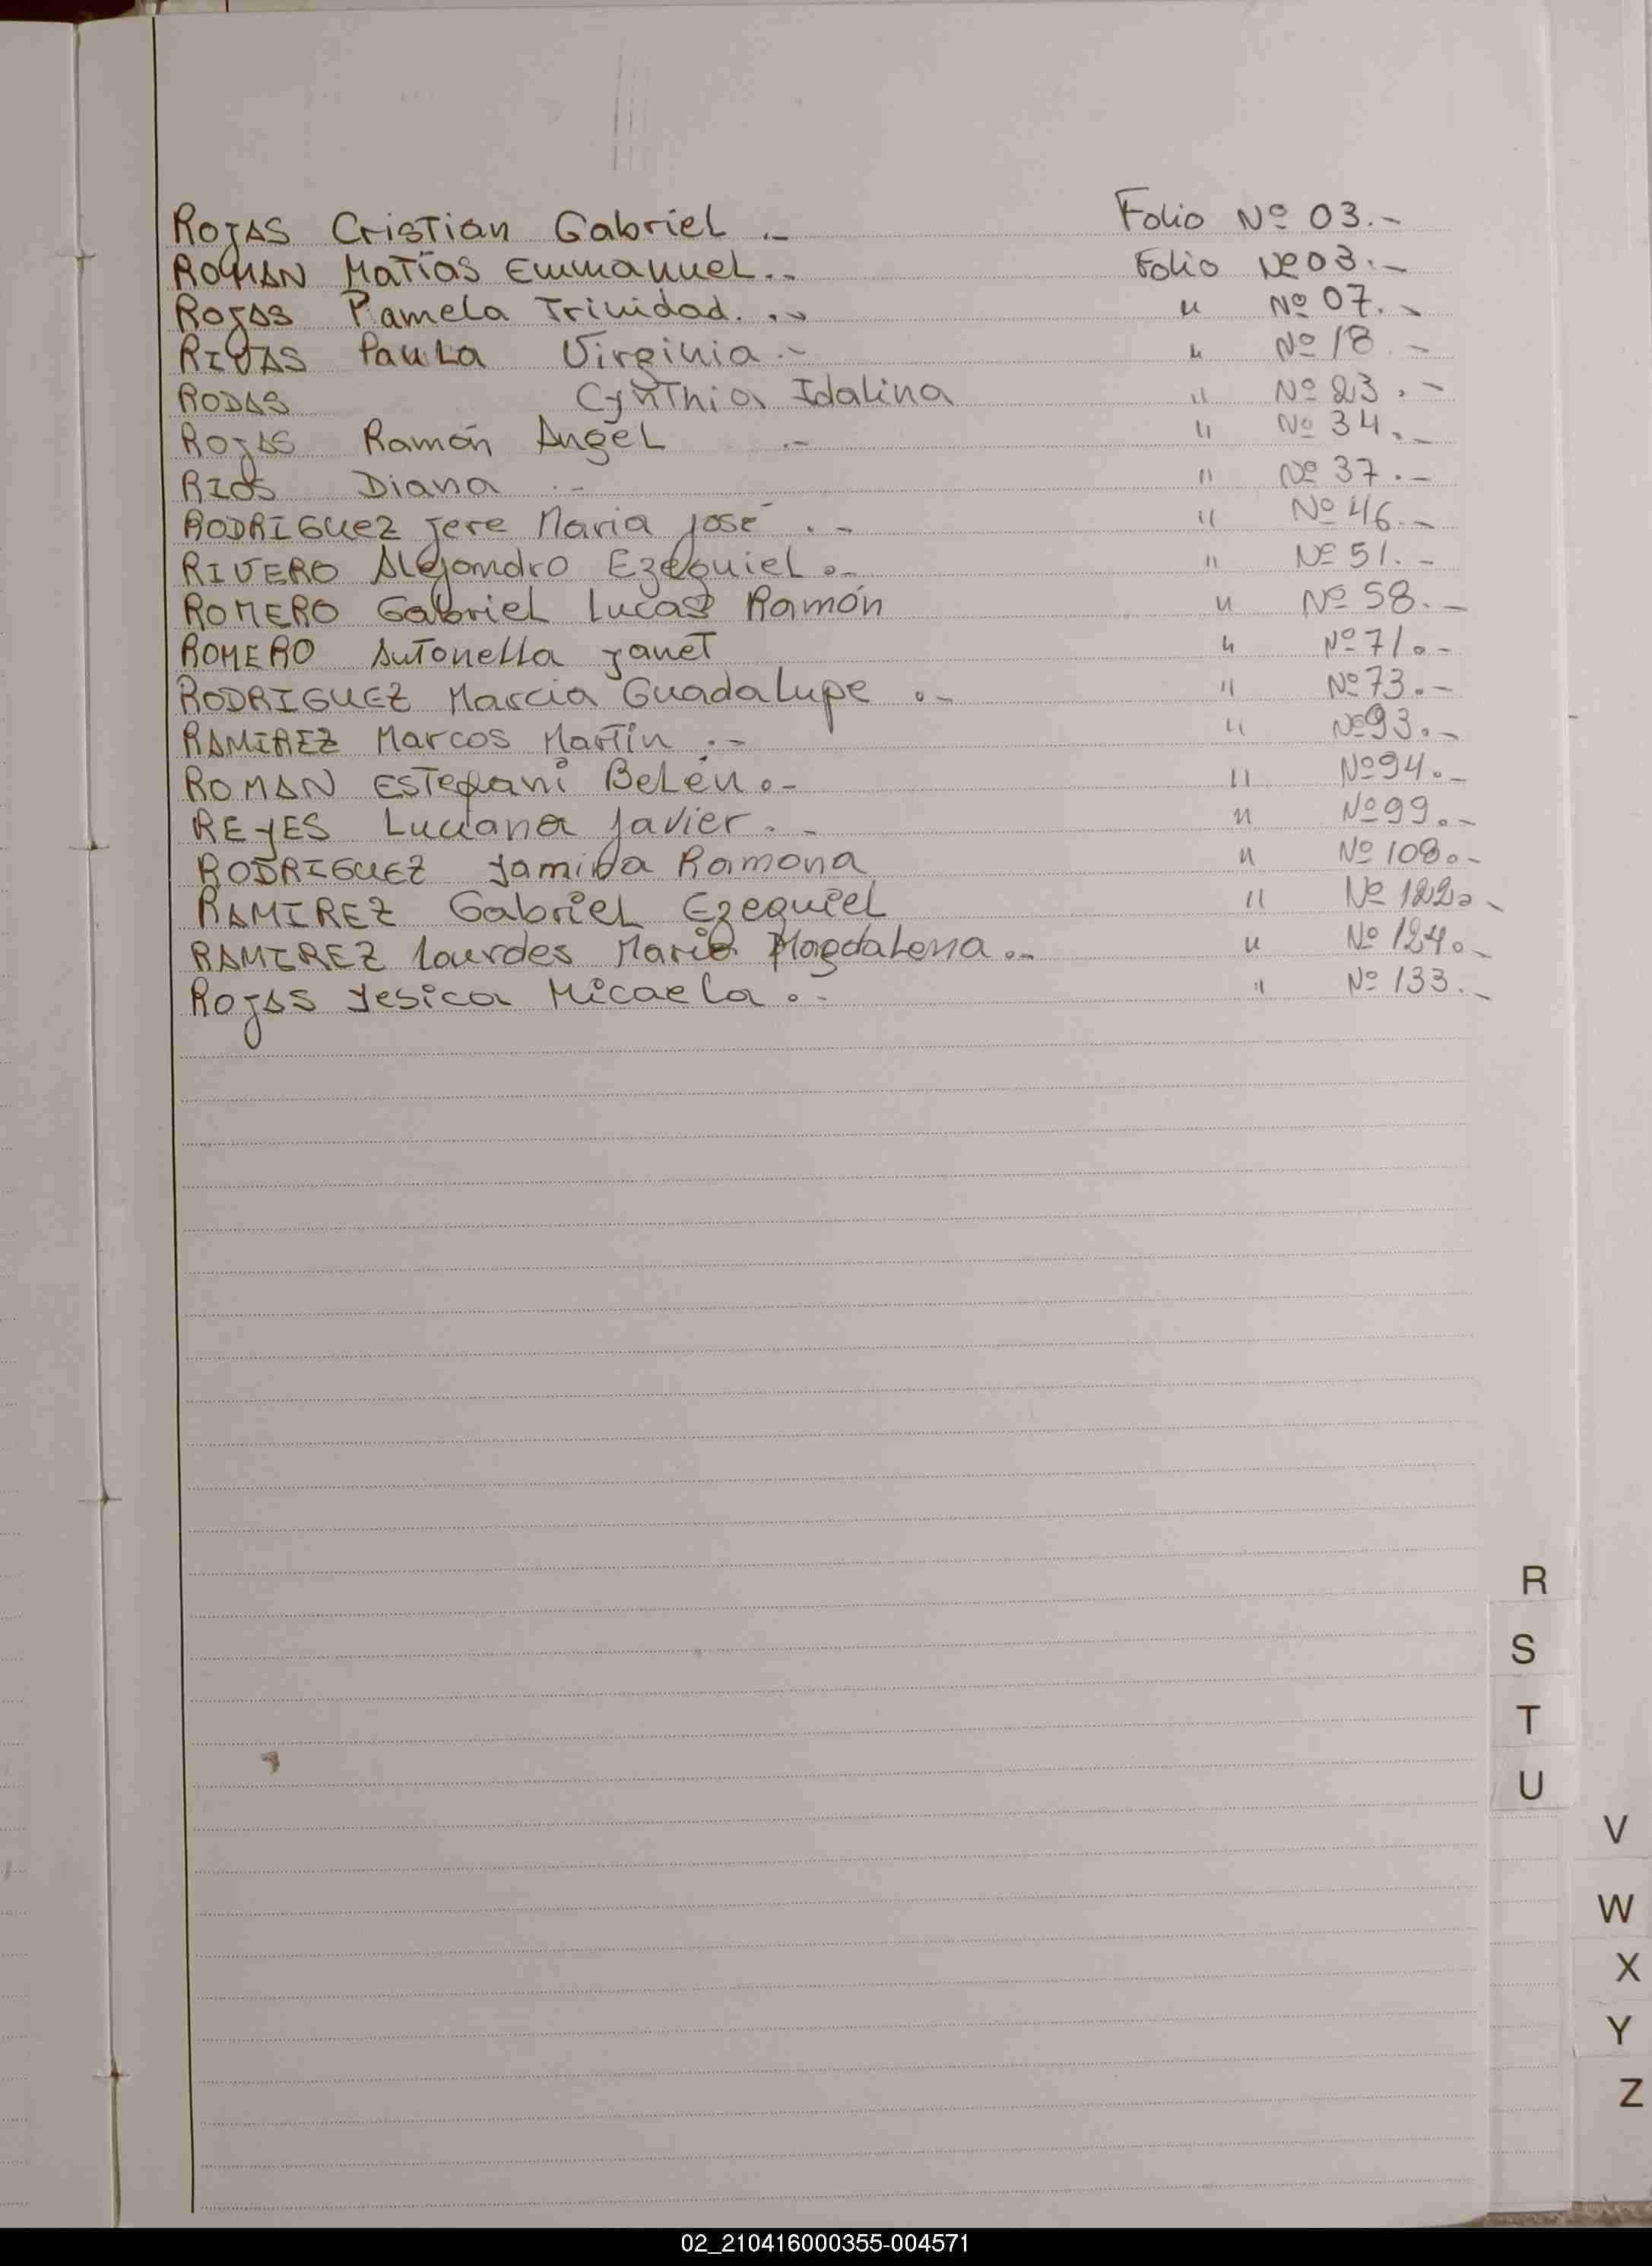 ROJAS Cristian Gabriel .- Folio Nº 03.-
ROMAN Matías Emmanuel.- Folio Nº 03.-
Rojas Pamela Trinidad. .- " Nº 07.-
RIVAS Paula Virginia.- " Nº 18.-
RODAS Cynthia Idalina " Nº 23.-
ROJAS Ramón Angel .- " Nº 34.-
RIOS Diana .- " Nº 37.-
RODRIGUEZ Jere Maria José .- " Nº 46.-
RIVERO Alejandro Ezequiel.- " Nº 51.-
ROMERO Gabriel Lucas Ramón " Nº 58.-
ROMERO Antonella Yanet " Nº 71.-
RODRIGUEZ Marcia Guadalupe .- " Nº 73.-
RAMIREZ Marcos Martín .- " Nº 93.-
ROMAN Estefani Belén.- " Nº 94.-
REYES Luciana Javier.- " Nº 99.-
RODRIGUEZ Yamina Ramona " Nº 108.-
RAMIREZ Gabriel Ezequiel " Nº 122.-
RAMIREZ Lourdes Maria Magdalena.- " Nº 124.-
ROJAS Yesica Micaela.- " Nº 133.-
R
S
T
U
V
W
X
Y
Z
02_210416000355-004571